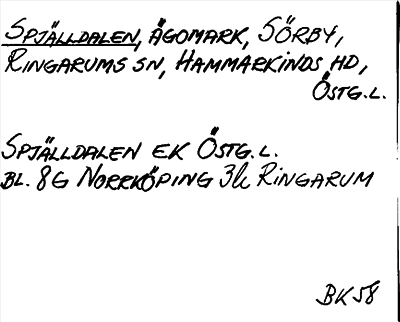 Spjälldalen, Ägomark, Sörby,
Ringarums sn, Hammarkinds hd,
Östg.l.
Spjälldalen EK Östg.l.
bl. 8G Norrköping 3h Ringarum
BK 58